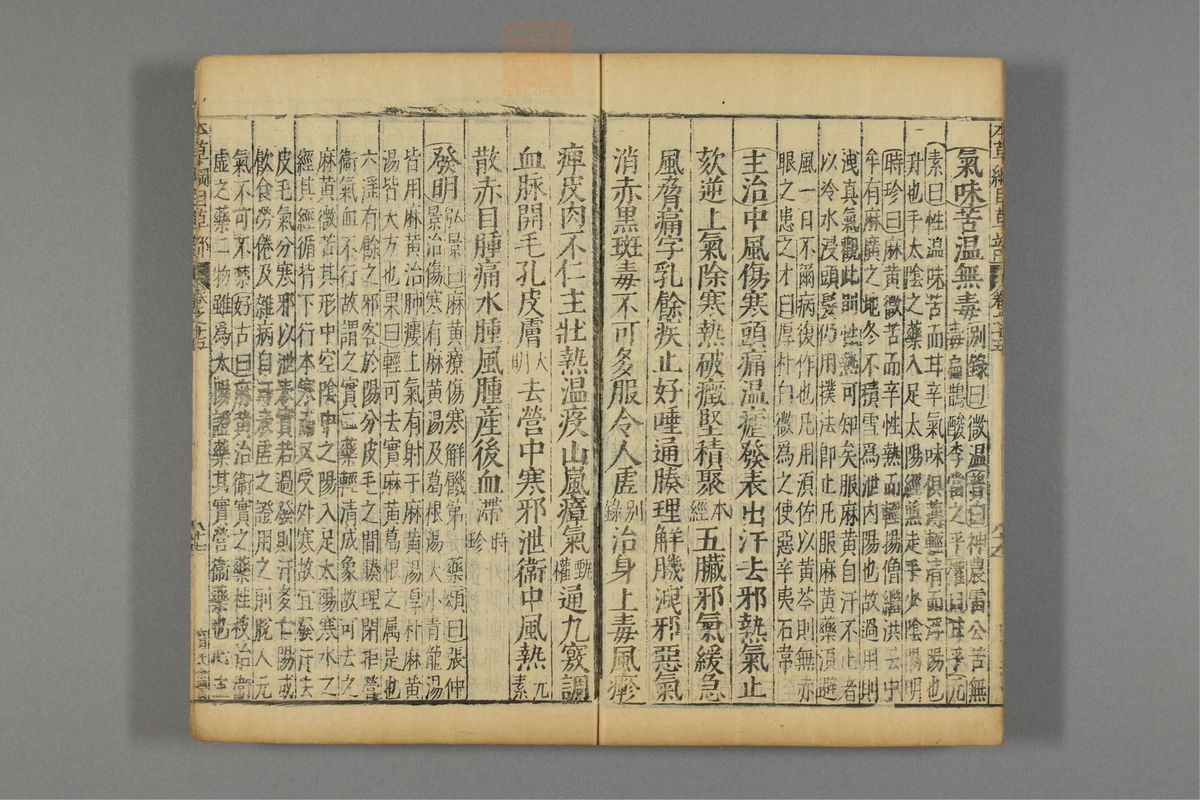 氣味苦溫無毒別錄曰微溫普曰神農雷公苦無
毒扁鵲酸李當之平權曰甘平元
素曰性溫味苦而甘辛氣味俱薄輕清而浮陽也
升也手太陰之藥入足太陽經兼走手少陰陽明
時珍曰麻黃微苦而辛性熱而輕揚僧繼洪云中
牟有麻黃之地冬不積雪爲泄内陽也故過用則
洩真氣觀此則性熱可知矣服麻黃自汗不止者
以冷水浸頭髮仍用撲法即止凡服麻黃藥須避
風一日不爾病復作也凡用須佐以黃芩則無赤
眼之患之才曰厚朴白微爲之使惡辛夷石韋
主治中風傷寒頭痛溫瘧發表出汗去邪熱氣止
欬逆上氣除寒熱破癥堅積聚本經五臟邪氣緩急
風脅痛字乳餘疾止好唾通腠理解肌洩邪惡氣
消赤黑斑毒不可多服令人虛別錄治身上毒風
痺皮肉不仁主壯熱溫疫山嵐瘴氣甄權通九竅調
血脉開毛孔皮膚大明去營中寒邪泄衞中風熱元素
散赤目腫痛水腫風腫産後血滯時珍
發明弘景曰麻黃療傷寒解肌第一藥頌曰張仲
景治傷寒有麻黃湯及葛根湯大小青龍湯
皆用麻黃治肺痿上氣有射干麻黃湯厚朴麻黃
湯皆大方也果曰輕可去實麻黃葛根之屬是也
六淫有餘之邪客於陽分皮毛之間腠理閉拒營
衛氣血不行故謂之實二藥輕清成象故可去之
麻黃微苦其形中空陰中之陽入足太陽寒水之
經其經循背下行本寒而又受外寒故宜發汗去
皮毛氣分寒邪以泄表實若過發則汗多亡陽或
飲食勞倦及雜病自汗表虛之證用之則脫人元
氣不可不禁好古曰麻黃治衛實之藥桂枝治衛
虛之藥二物雖爲太陽證藥其實營衞藥也心主
本草綱目草部 卷之十五